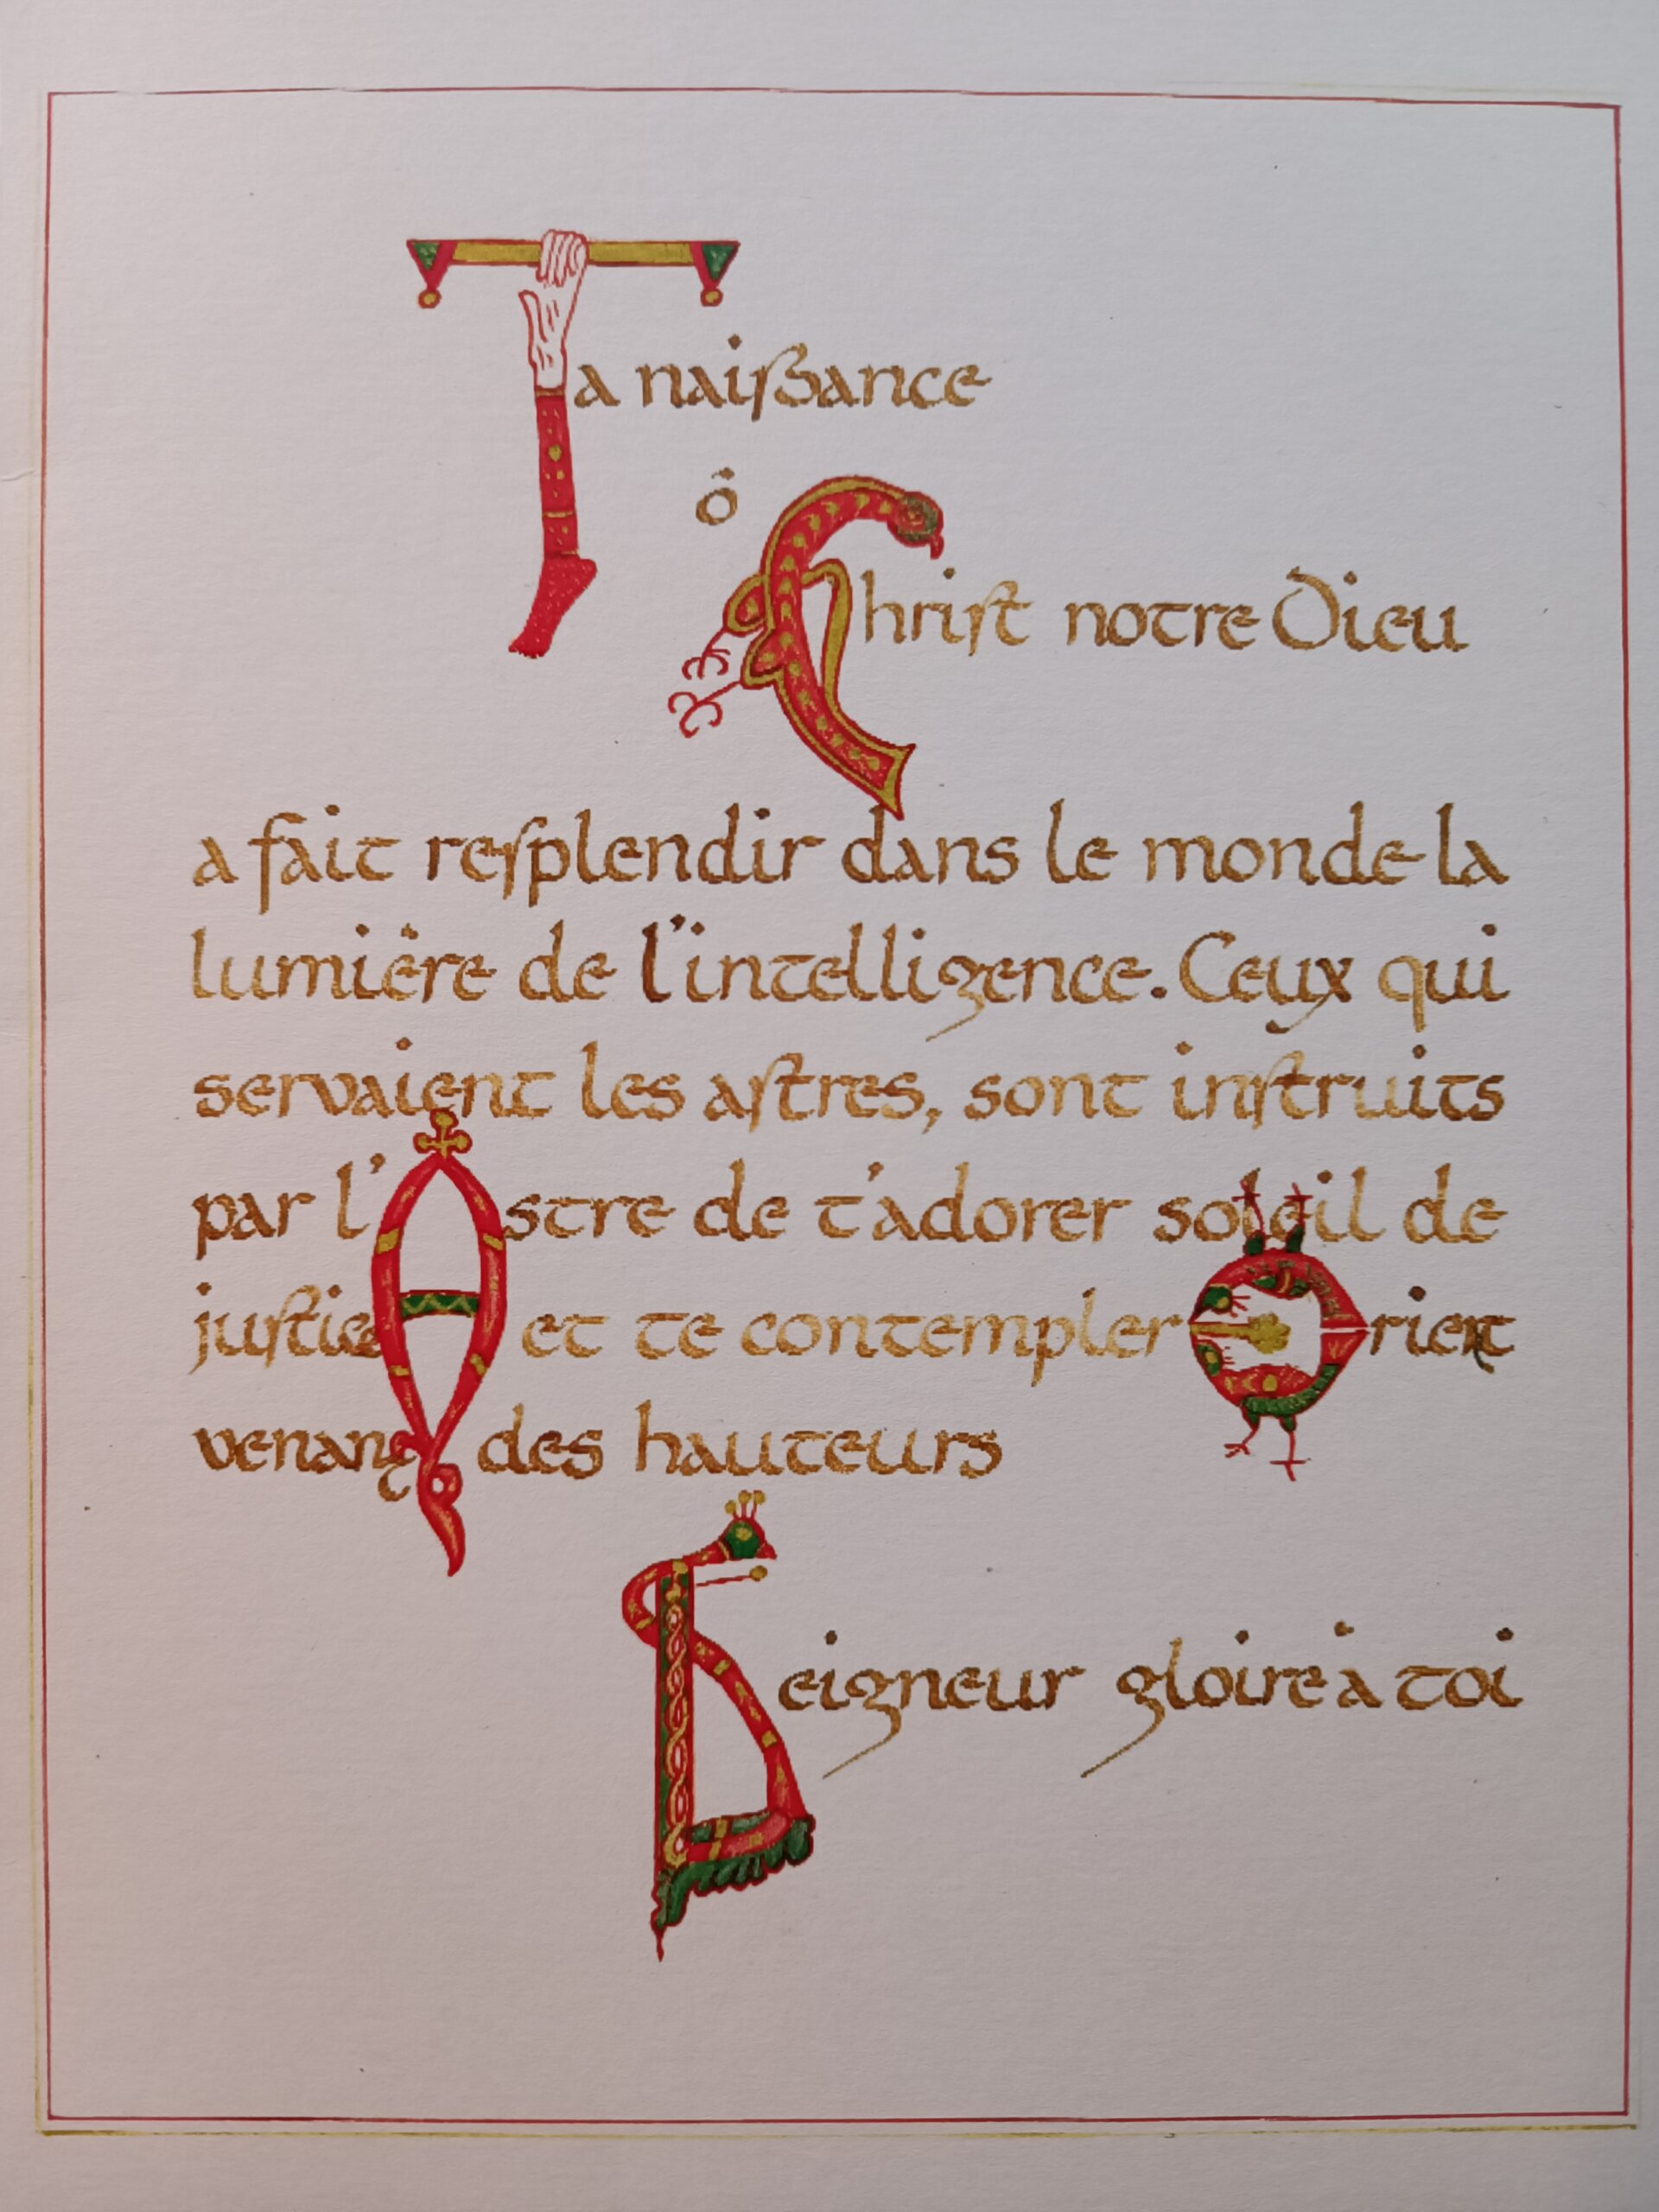 Ta naißance
ô
Chriſt notre Dieu
a fait reſplendir dans le monde la
lumière de l'intelligence. Ceux qui
servaient les aſtres, sont inſtruits
par l'Astre de t'adorer soleil de
juſtice et te contempler Orient
venant des hauteurs
Seigneur gloire à toi